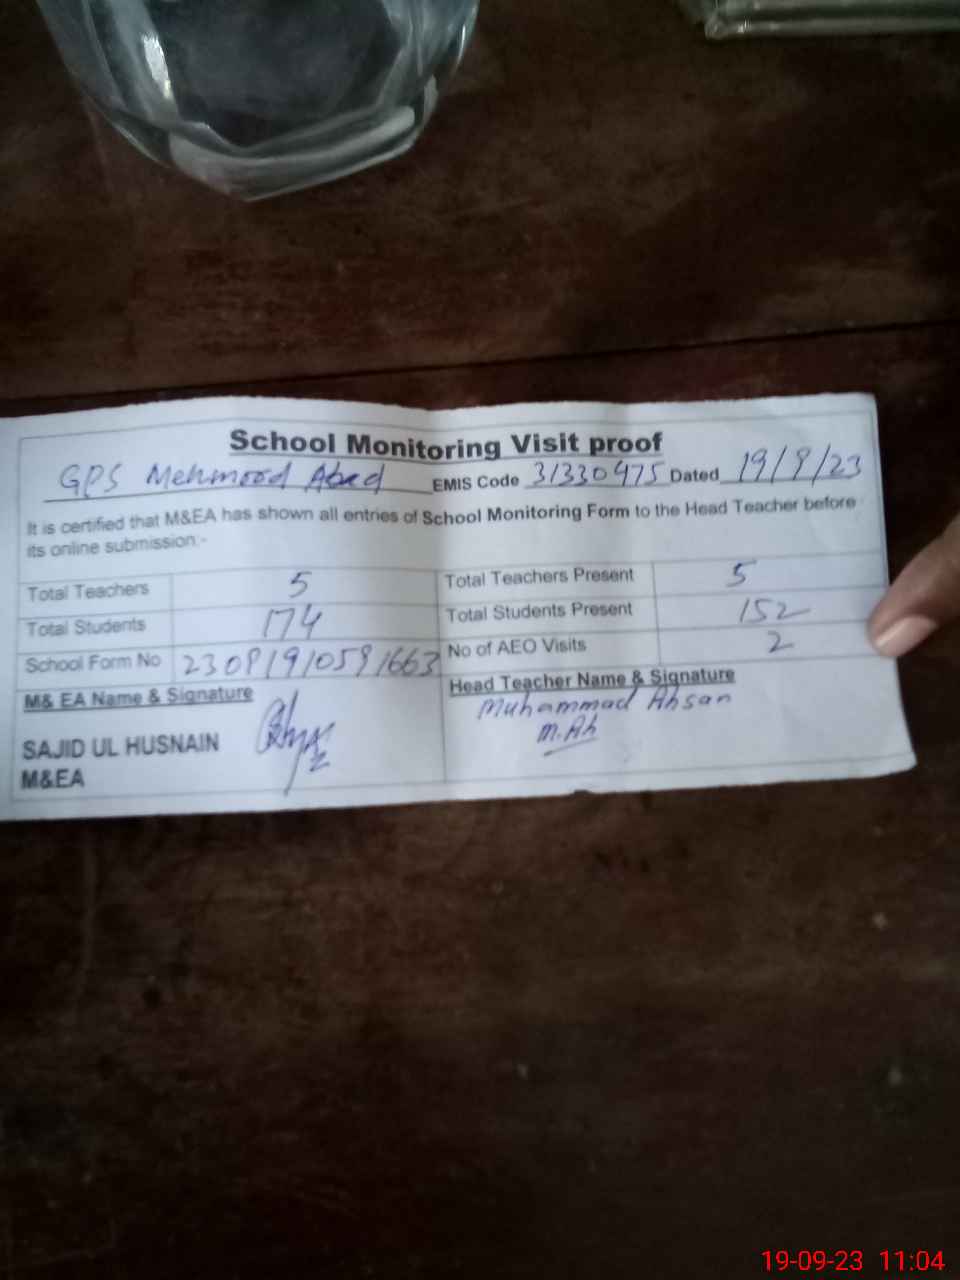 School Monitoring Visit proof
GPS Mehmood Abad EMIS Code 31330475 Dated 19/9/23
It is certified that M&EA has shown all entries of School Monitoring Form to the Head Teacher before
its online submission:-
Total Teachers 5 Total Teachers Present 5
Total Students 174 Total Students Present 152
School Form No No of AEO Visits 2
M& EA Name & Signature Head Teacher Name & Signature
Muhammad Ahsan
SAJID UL HUSNAIN M.Ah
M&EA
19-09-23 11:04